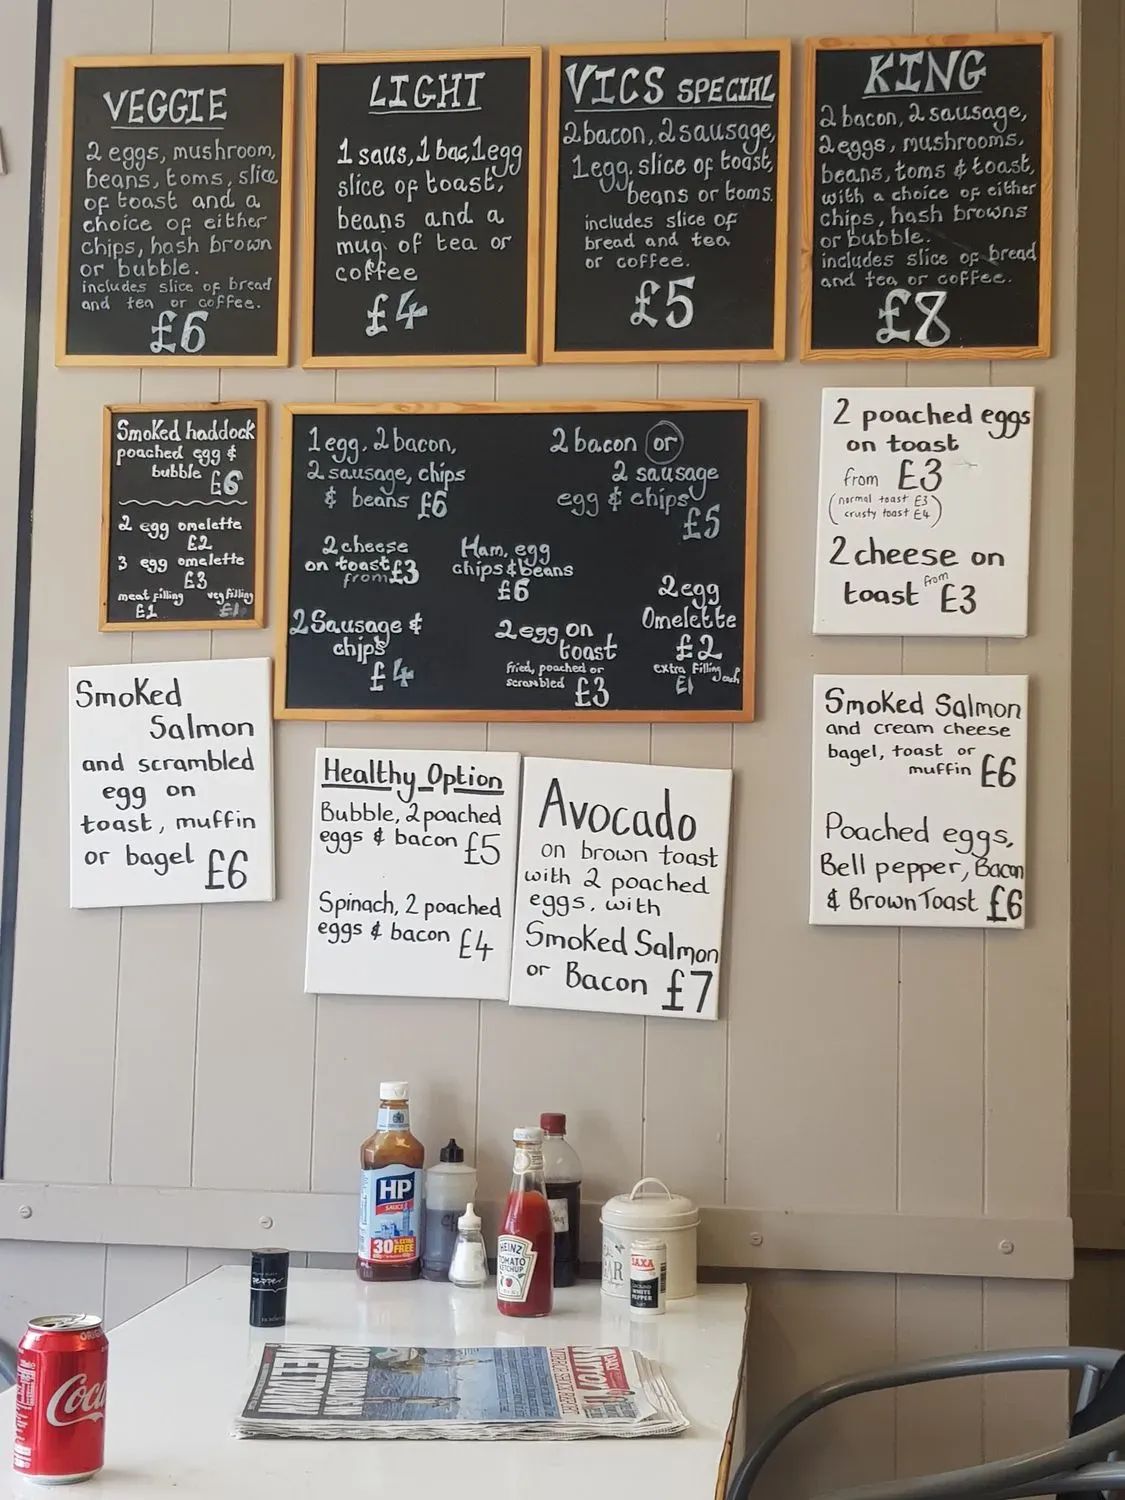 VEGGIE
2 eggs, mushroom,
beans, toms, slice
of toast and a
choice of either
chips, hash brown
or bubble.
includes slice of bread
and tea or coffee.
£6
LIGHT
1 saus, 1 bac, 1 egg
slice of toast,
beans and a
mug of tea or
coffee
£4
VICS SPECIAL
2 bacon, 2 sausage,
1 egg, slice of toast,
beans or toms.
includes slice of
bread and tea
or coffee.
£5
KING
2 bacon, 2 sausage,
2 eggs, mushrooms,
beans, toms & toast,
with a choice of either
chips, hash browns
or bubble.
includes slice of bread
and tea or coffee.
£8
Smoked haddock
poached egg &
bubble £6
2 egg omelette
£2
3 egg omelette
£3
meat filling
£1
veg filling
£1
1 egg, 2 bacon,
2 sausage, chips
& beans £6
2 bacon or
2 sausage
egg & chips
£5
2 cheese
on toast £3
from
Ham, egg
chips & beans
£6
2 Sausage &
chips
£4
2 egg on
toast
fried, poached or
scrambled £3
2 egg
Omelette
£2
extra filling each
£1
2 poached eggs
on toast
from £3
(normal toast £3
crusty toast £4)
2 cheese on
toast from £3
Smoked
Salmon
and scrambled
egg on
toast, muffin
or bagel £6
Healthy Option
Bubble, 2 poached
eggs & bacon £5
Spinach, 2 poached
eggs & bacon £4
Avocado
on brown toast
with 2 poached
eggs, with
Smoked Salmon
or Bacon £7
Smoked Salmon
and cream cheese
bagel, toast or
muffin £6
Poached eggs,
Bell pepper, Bacon
& Brown Toast £6
HP
SAUCE
30% EXTRA
FREE
HEINZ
TOMATO
KETCHUP
SAXA
WHITE
PEPPER
pepper
Coca
MELTDOWN